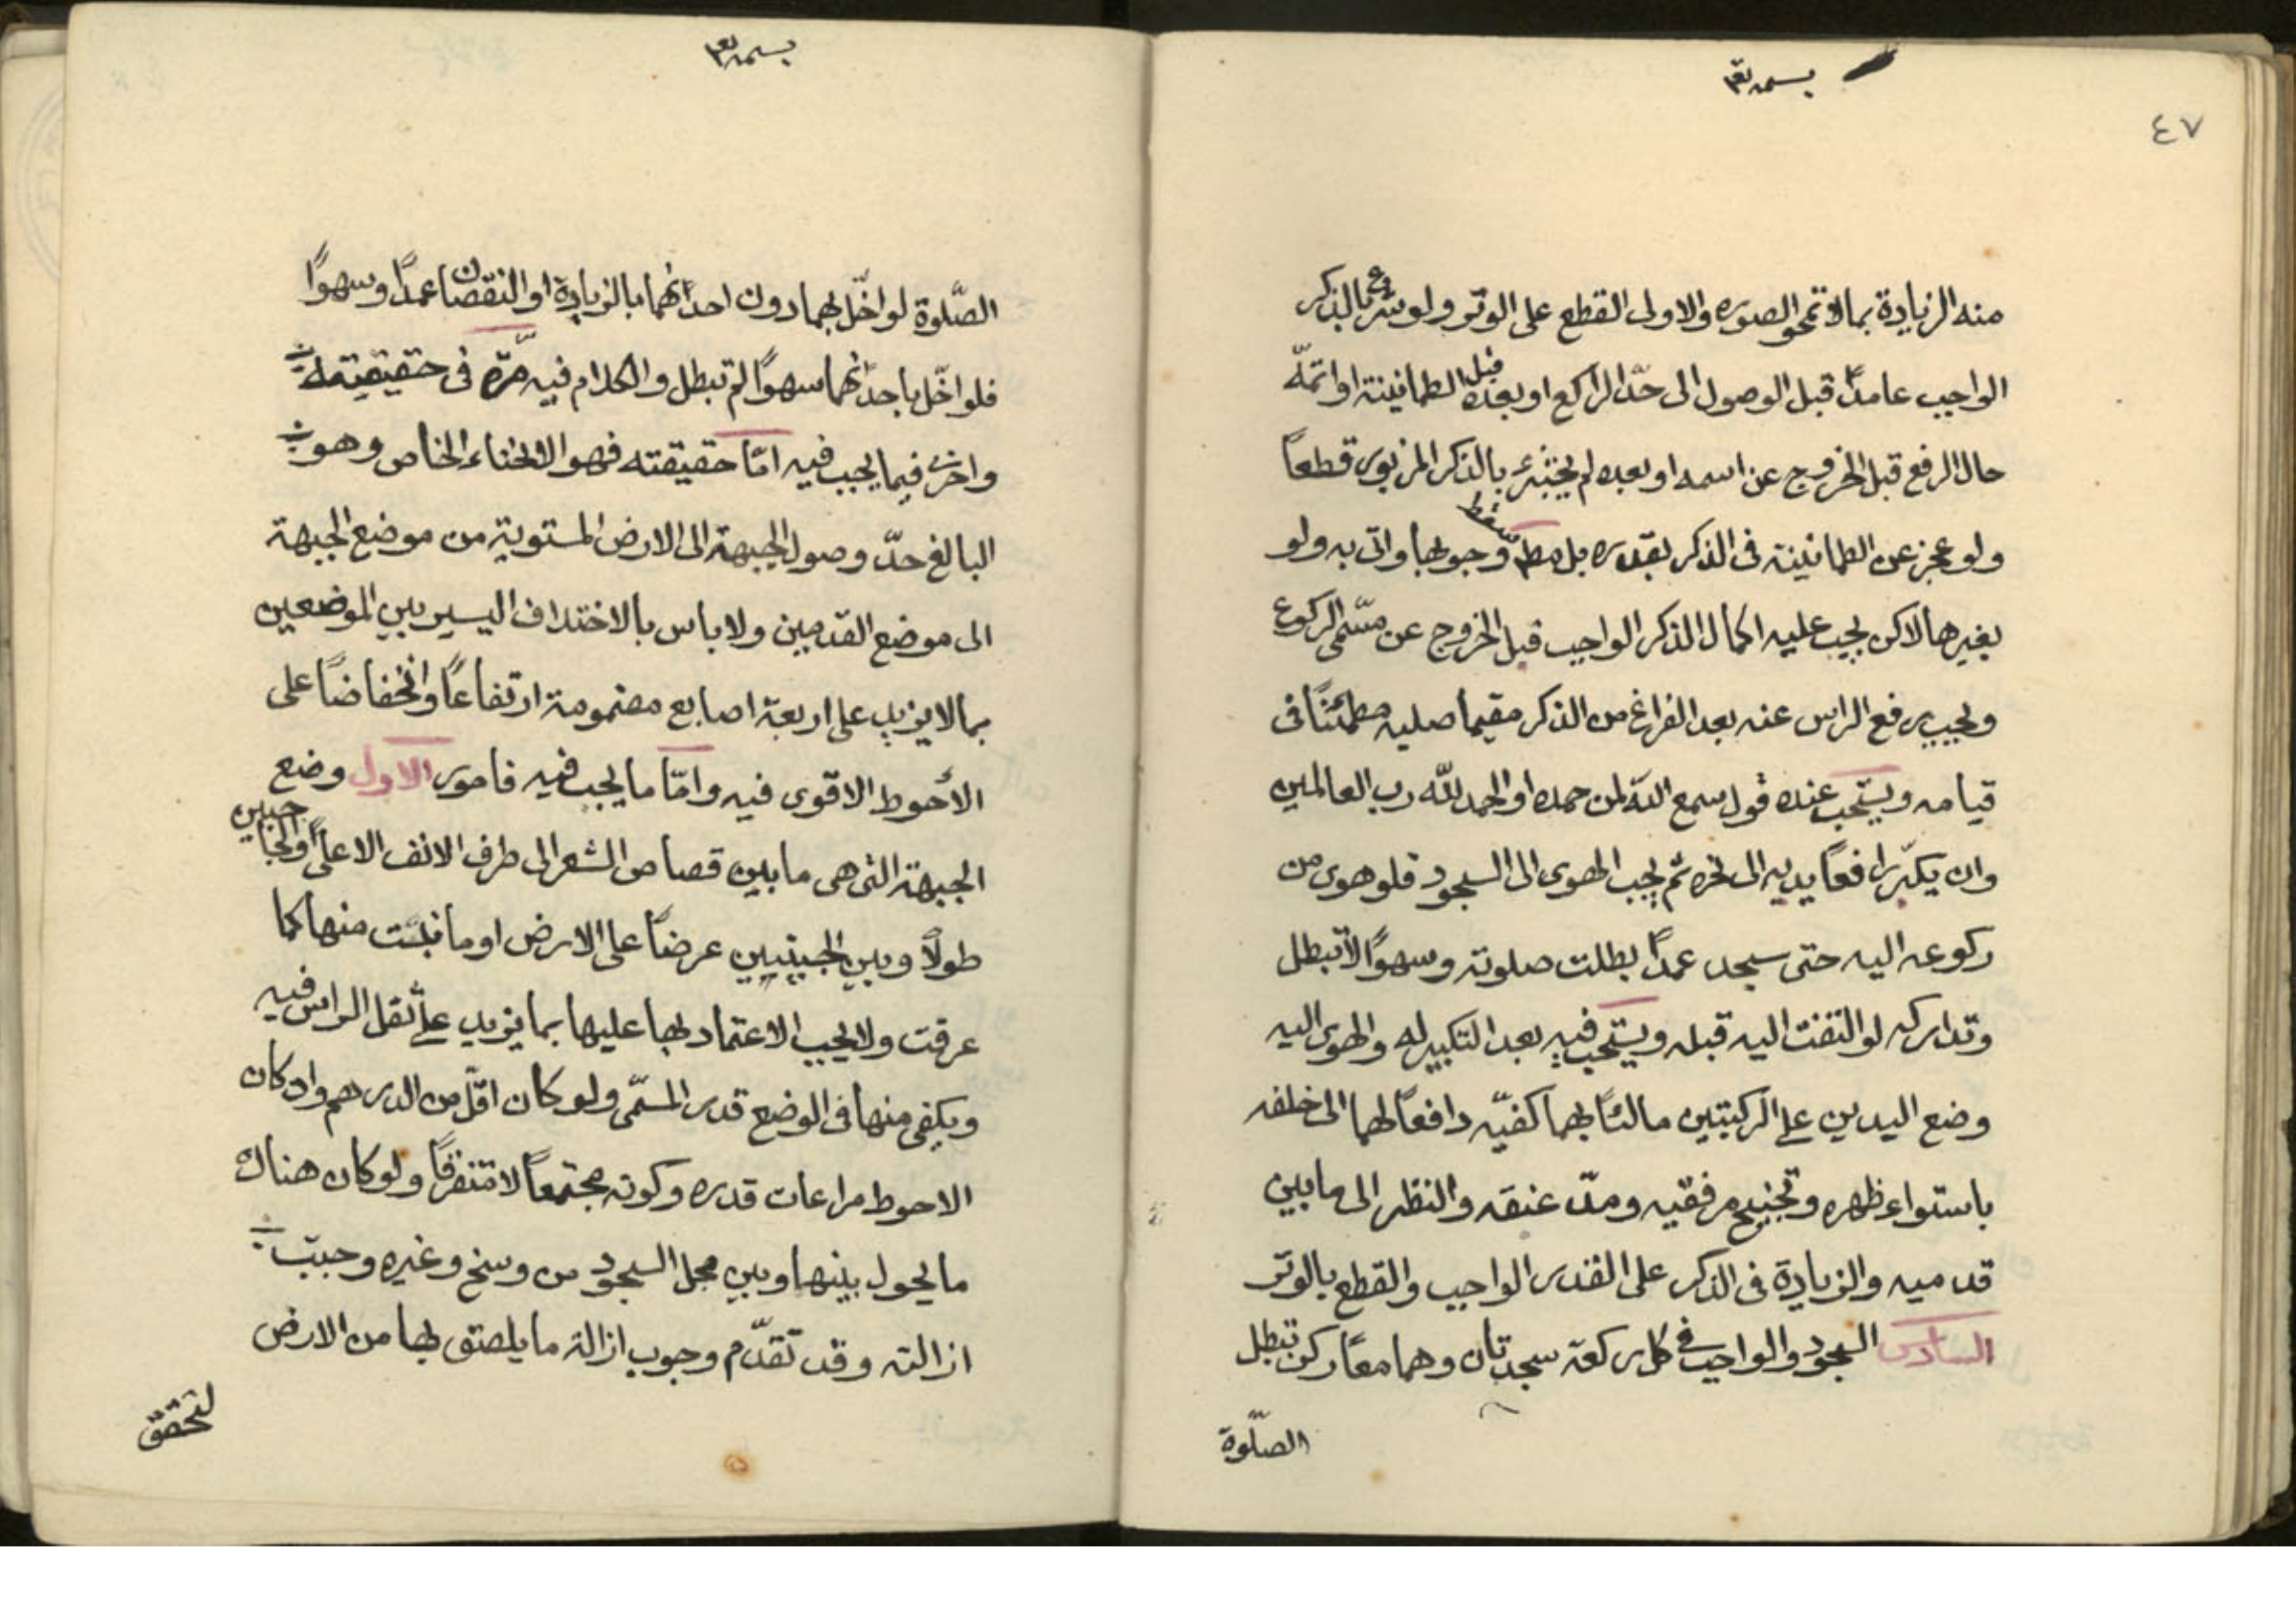 بسمه تعا
٤٧
منه الزيادة بما لا تمحو الصوره والاولى القطع على الوتر ولو شرع بالذكر
الواجب عامداً قبل الوصول الى حدّ الراكع او بعده قبل الطمانينة او اتمّه
حال الرفع قبل الخروج عن اسمه او بعده لم يجتزء بالذكر المزبور قطعاً
ولو عجز عن الطمانينة فى الذكر بقدره سقط وجوبها واتى به ولو
بغيرها لاكن يجب عليه اكمال الذكر الواجب قبل الخروج عن مسّمى الركوع
ويجب رفع الراس عنه بعد الفراغ من الذكر مقيما صلبه مطمئنّاً فى
قيامه ويستحب عنده قول سمع الله لمن حمده او الحمد لله رب العالمين
وان يكبّر رافعاً يديه الى نحره ثم يجب الهوى الى السجود فلو هوى من
ركوعه اليه حتى سجد عمداً بطلت صلوته وسهواً لا تبطل
وتداركه لو التفت اليه قبله ويستحب فيه بعد التكبير له والهوى اليه
وضع اليدين على الركبتين مالئاً بهما كفيّه دافعاً لهما الى خلفه
باستواء ظهره وتجنيح مرفقيه ومدّ عنقه والنظر الى ما بين
قدميه والزيادة فى الذكر على القدر الواجب والقطع بالوتر
السادس السجود والواجب فى كل ركعة سجدتان وهما معاً ركن تبطل
الصلّوة
بسمه تعا
الصّلوة لو اخّل بهما دون احدٰهما بالزيادة او النقصان عمداً وسهواً
فلو اخّل باحدٰهما سهواً لم تبطل والكلام فيه مرّة فى حقيقيته
واخرى فيما يجب فيه امّا حقيقته فهو الانحناء الخاص وهو
البالغ حدّ وصول الجبهة الى الارض المستوية من موضع الجبهة
الى موضع القدمين ولا باس بالاختلاف اليسير بين الموضعين
بما لا يزيد على اربعة اصابع مضمومة ارتفاعاً وانخفاضاً على
الأحوط الاقوى فيه وامّا ما يجب فيه فامور الاول وضع
الجبهة التى هى ما بين قصاص الشعر الى طرف الانف الاعلى والجبينين
طولاً وبين الجبينين عرضاً على الارض او ما نبتت منها كما
عرفت ولا يجب الاعتماد بها عليها بما يزيد على ثقل الراس فيه
ويكفى منها فى الوضع قدر المسّمى ولو كان اقّل من الدرهم وان كان
الاحوط مراعات قدره وكونه مجتمعاً لا متفرقاً ولو كان هناك
ما يحول بينها وبين محل السجود من وسخ وغيره وجبت
ازالته وقد تقدّم وجوب ازالة ما يلصتق بها من الارض
لتحقق